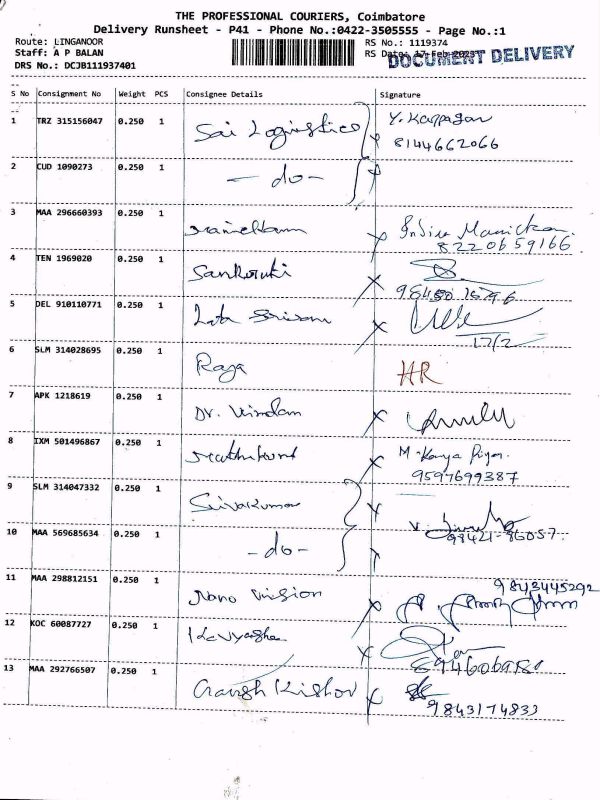 THE PROFESSIONAL COURIERS, Coimbatore
Delivery Runsheet - P41 - Phone No.:0422-3505555 - Page No.:1
Route: LINGANOOR
RS No.: 1119374
Staff: A P BALAN
RS Date: 17-Feb-2023
DOCUMENT DELIVERY
DRS No.: DCJB111937401
S No Consignment No Weight PCS Consignee Details Signature
1 TRZ 315156047 0.250 1 Sai Logistics Y. Kappagan
8144662066
2 CUD 1090273 0.250 1 - do -
3 MAA 296660393 0.250 1 Manickam
8220659166
4 TEN 1969020 0.250 1 Sankaruki
5 DEL 910110771 0.250 1 Lata
17/2
6 SLM 314028695 0.250 1 Raja HR
7 APK 1218619 0.250 1 Dr.
8 IXM 501496867 0.250 1 M. Kanya Priya.
9597699387
9 SLM 314047332 0.250 1 Sivakumar
10 MAA 569685634 0.250 1 - do - 98421-86057
11 MAA 298812151 0.250 1 Nano Vision 9843445292
12 KOC 60087727 0.250 1
8946069
13 MAA 292766507 0.250 1 Kishor
9843174833